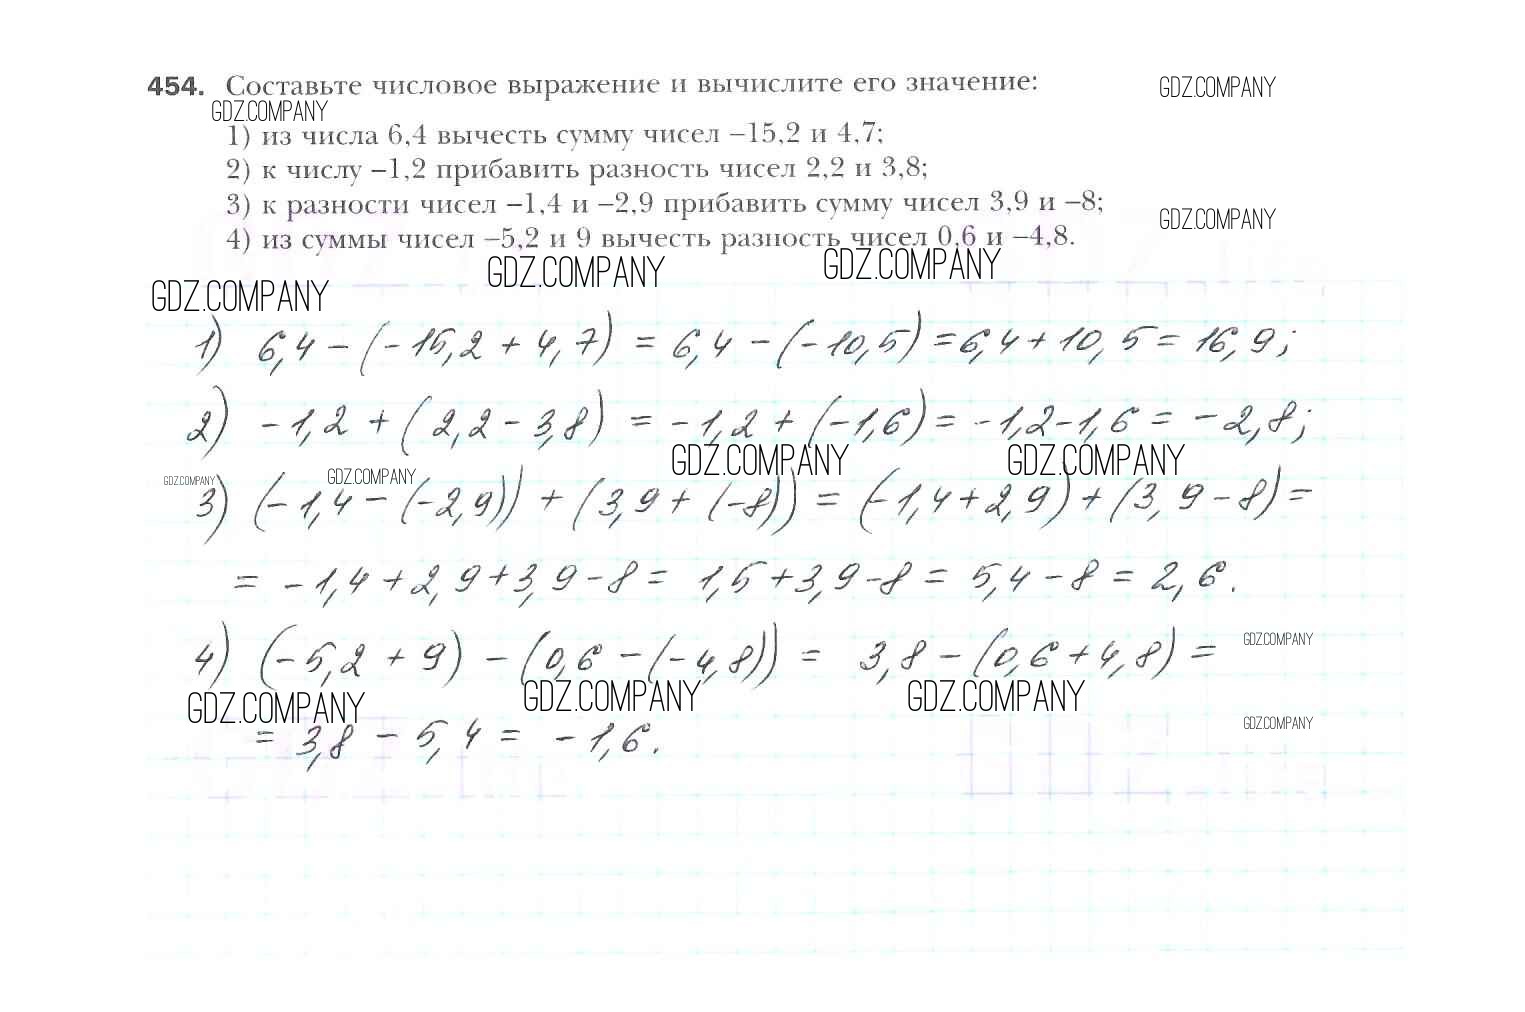 454. Составьте числовое выражение и вычислите его значение:
GDZ.COMPANY
GDZ.COMPANY
1) из числа 6,4 вычесть сумму чисел –15,2 и 4,7;
2) к числу –1,2 прибавить разность чисел 2,2 и 3,8;
3) к разности чисел –1,4 и –2,9 прибавить сумму чисел 3,9 и –8;
GDZ.COMPANY
4) из суммы чисел –5,2 и 9 вычесть разность чисел 0,6 и –4,8.
GDZ.COMPANY
GDZ.COMPANY
GDZ.COMPANY
1) 6,4 – (-15,2 + 4,7) = 6,4 – (-10,5) = 6,4 + 10,5 = 16,9;
2) -1,2 + (2,2 - 3,8) = -1,2 + (-1,6) = -1,2-1,6 = -2,8;
GDZ.COMPANY
GDZ.COMPANY
GDZ.COMPANY
GDZ.COMPANY
3) (-1,4 - (-2,9)) + (3,9 + (-8)) = (-1,4 + 2,9) + (3,9 - 8) =
= -1,4 + 2,9 + 3,9 - 8 = 1,5 + 3,9 - 8 = 5,4 - 8 = 2,6.
4) (-5,2 + 9) - (0,6 - (-4,8)) = 3,8 - (0,6 + 4,8) =
GDZ.COMPANY
GDZ.COMPANY
GDZ.COMPANY
GDZ.COMPANY
GDZ.COMPANY
= 3,8 - 5,4 = -1,6.